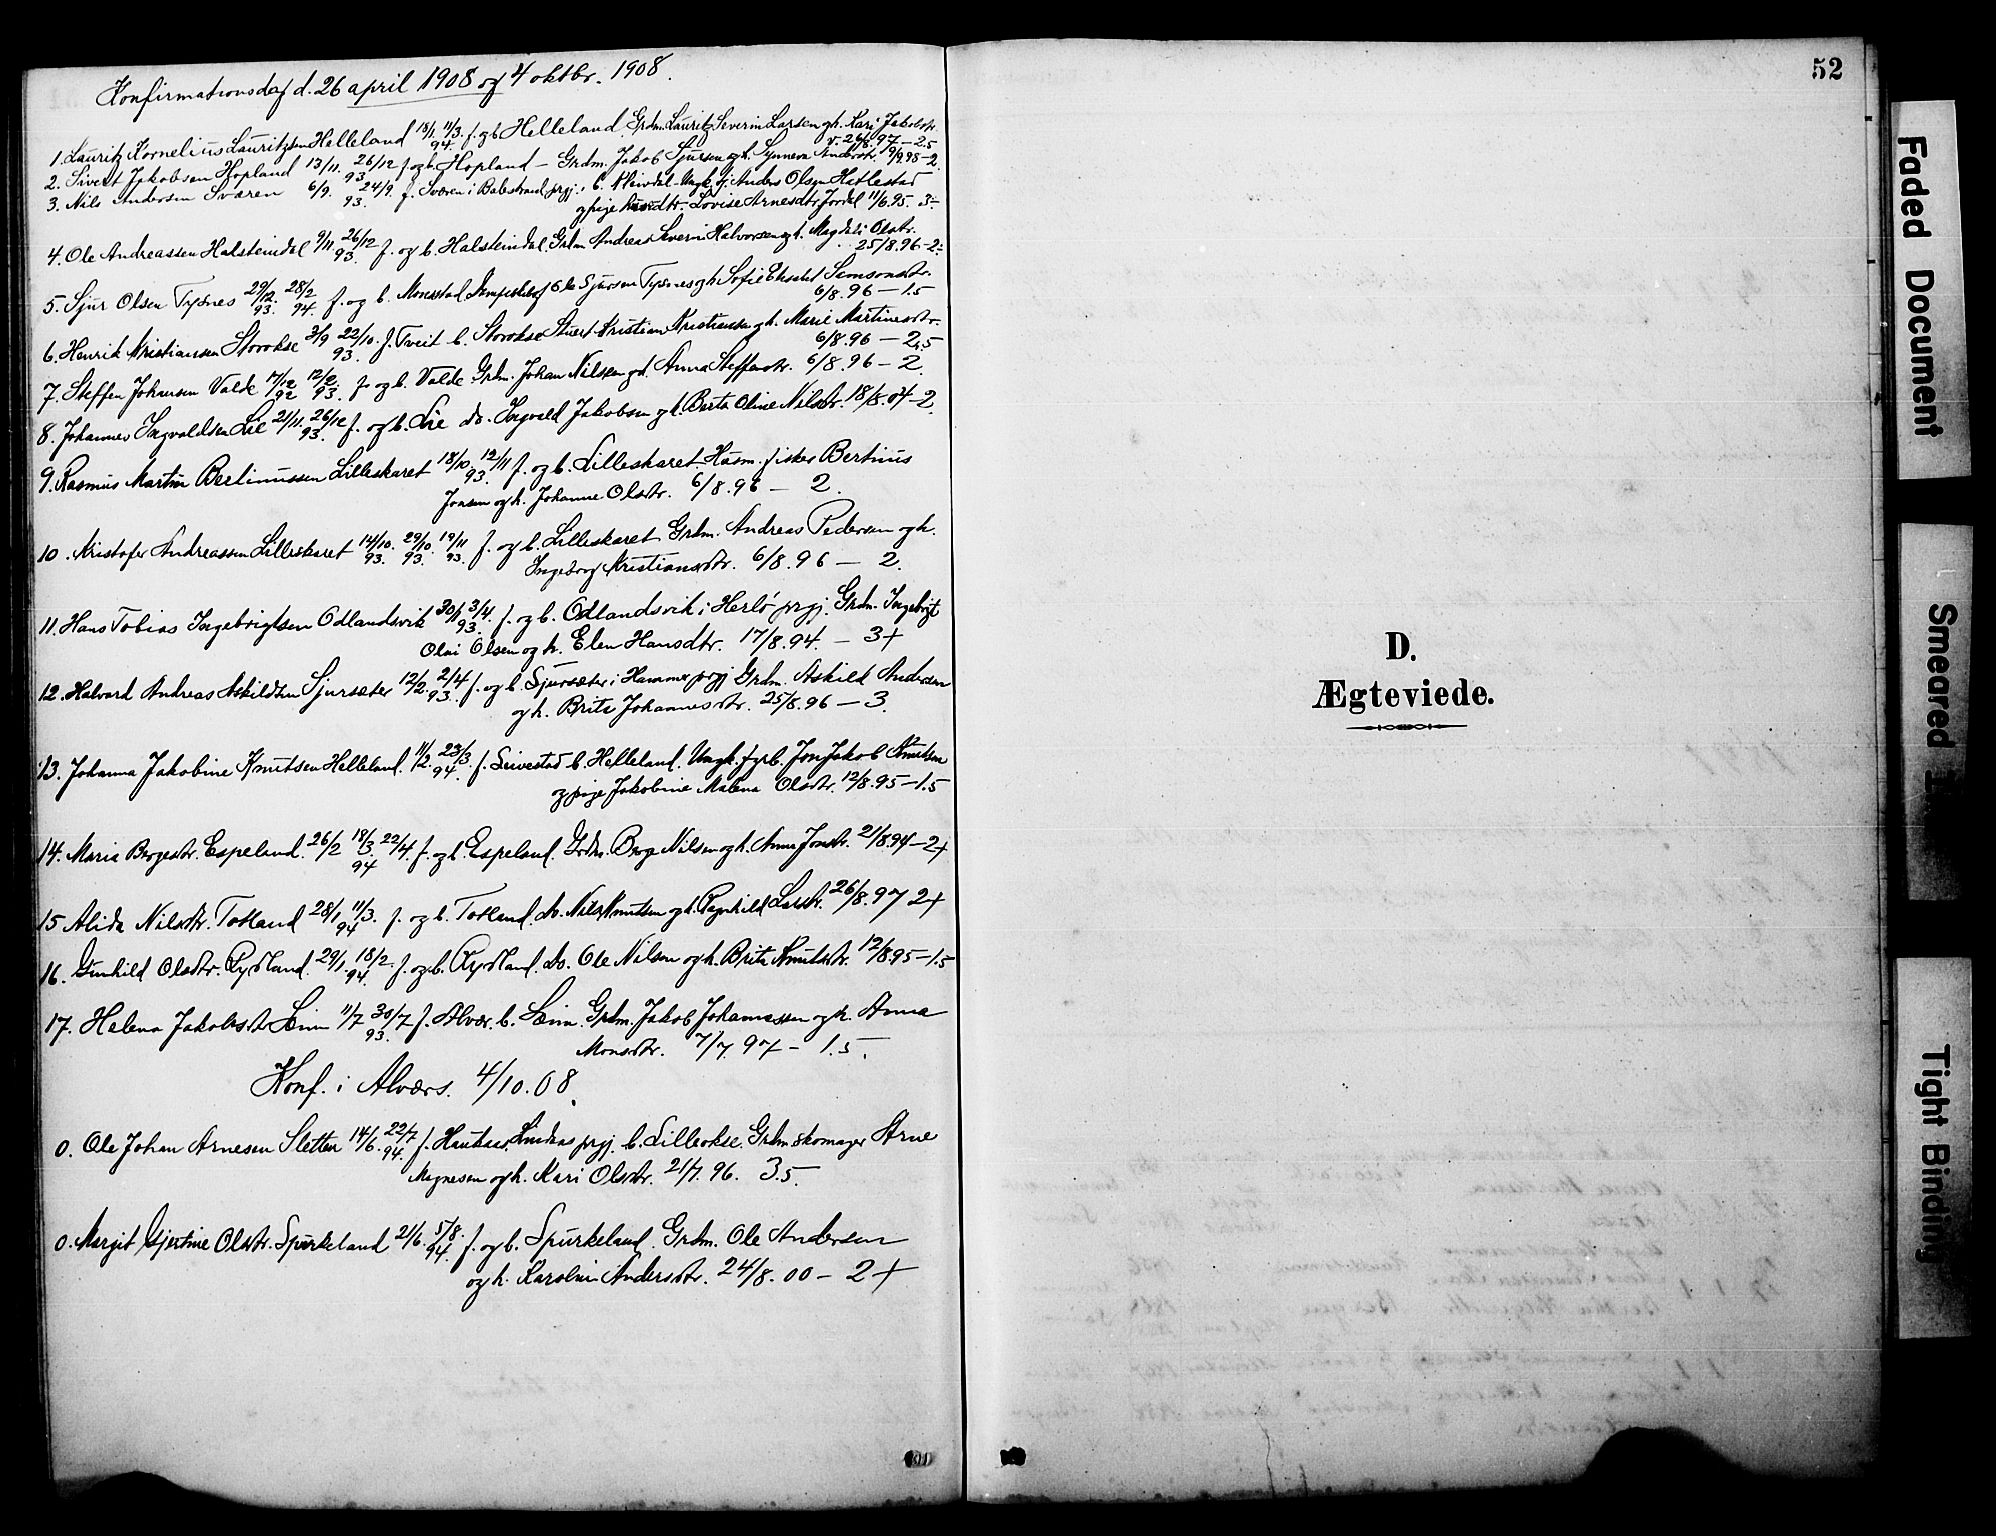 Konfirmationsdag d. 26 april 1908 og 4 oktbr. 1908.
1. Lauritz Kornelius Lauritzsen Helleland 15/1 11/3 94. f. og b. Helleland. Grdm. Lauritz Severin Larsen og h. Kari Jakobsdtr.
v. 26/8.97 - 2.5
2. Sivert Jakobsen Hopland 13/11. 26/12 93 f. og b. Hopland - Grdm. Jakob Sjursen og h. Synneva Andersdtr. 9/9.98 - 2
3. Nils Andersen Sværen 6/9. 24/9. 93. f. Sværen i Balestrand prgj. b. Ungk. Anders Olsen Hatlestad
og pige Lovise Arnesdtr. Jordal 11/6.95. 3-
4. Ole Andreassen Halsteindal 9/11. 26/12 93. f. og b. Halsteindal. Grdm Andreas Severin Halvorsen og h. Magdeli Olsdtr.
25/8.96 - 2-
5. Sjur Olsen Tysnes 29/12. 93. 28/2 94. f. og b. Monstad Ole Sjursen Tysnes og h. Sofie Simonsdtr.
6/8.96 - 1.5
6. Henrik Kristiansen Storokse 3/9 22/10 93. f. Tveit b. Storokse Kristian Kristiansen og h. Marie Martinesdtr.
6/8.96 - 2.5
7. Steffen Johansen Valde 17/12 92 12/2. 93. f. og b. Valde. Grdm. Johan Nilsen og h. Anna Steffensdtr. 6/8.96 - 2.
8. Johannes Ingvaldsen Lie 21/11. 26/12 93. f. og b. Lie do. Ingvald Jakobsen og h. Berta Oline Nilsdtr. 18/8.04 - 2
9. Rasmus Martin Bertinussen Lilleskaret 18/10. 12/11 93. f. og b. Lilleskaret. Husm. fisker Bertinus
Jonsen og h. Johanne Olsdtr. 6/8.96 - 2.
10. Kristofer Andreassen Lilleskaret 14/10. 93. 29/10. 93. 19/11 93. f. og b. Lilleskaret Grdm. Andreas Pedersen og h.
Ingeborg Kristiansdtr. 6/8.96 - 2.
11. Hans Tobias Ingebrigtsen Odlandsvik 30/1 3/4. 93. f. og b. Odlandsvik i Herlö prgj. Grdm. Ingebrigt
Olai Olsen og h. Elen Hansdtr. 17/8.94. - 3+
12. Halvard Andreas Askildsen Sjursæter 12/2. 2/4 93. f. og b. Sjursæter i Hammer prgj Grdm. Askild Andersen
og h. Brita Johannesdtr. 25/8.96 - 3.
13. Johanna Jakobine Knutsen Helleland. 11/2. 23/3. 94. f. Seivestad b. Helleland. Ungk. fyrb. Jon Jakob Knutsen
og pige Jakobine Malena Olsdtr. 12/8.95 - 1.5
14. Maria Børgesdtr. Espeland. 26/2 18/3. 94 22/4. f. og b. Espeland. Grdm. Børge Nilsen og h. Anna Jonsdtr. 21/8.94 - 2+
15 Alida Nilsdtr. Totland 28/1 11/3. 94 f. og b. Totland. do. Nils Knutsen og h. Ragnhild Larsdtr. 26/8.97 2+
16. Gunhild Olsdtr. Rydland. 29/1. 18/2. 94. f. og b. Rydland. do. Ole Nilsen og h. Brita Knutsdtr. 12/8.95 - 1.5
17. Helena Jakobsdtr Seim 11/7 30/7 93. f. Alvær. b. Seim. Grdm. Jakob Johannessen og h. Anna
Monsdtr. 7/7. 97 - 1.5.
Konf. i Alværs. 4/10.08.
0. Ole Johan Arnesen Sletten 14/6. 22/7 94. f. Haukaas, Lindaas prgj. b. Lilleokse. Grdm skomager Arne
Magnesen og h. Kari Olsdtr. 21/7.96. 3.5.
0. Margit Gjertine Olsdtr. Spurkeland 21/6. 5/8. 94. f. og b. Spurkeland. Grdm. Ole Andersen
og h. Karoline Andersdtr. 24/8.00 - 2+
52
D.
Ægteviede.
Faded Document
Smeared
Tight Binding